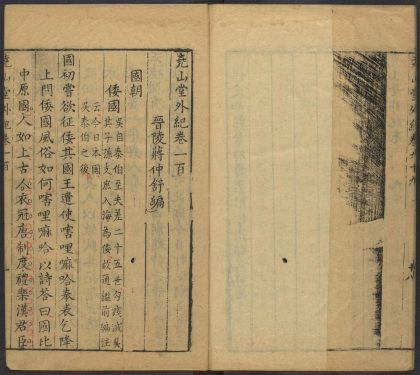 堯山堂外紀卷一百
晉陵蔣仲舒編
國朝
倭國
吳自泰伯至夫差二十五世勾踐滅吳
其子孫支庶入海為倭故通鑑前編註
云今日本國
吳泰伯之後
國初嘗欲征倭其國王遣使嗐哩嘛哈奉表乞降
上問倭國風俗如何嗐哩嘛哈以詩答曰國比
中原國人如上古人衣冠唐制度禮樂漢君臣
堯山堂外紀卷一百